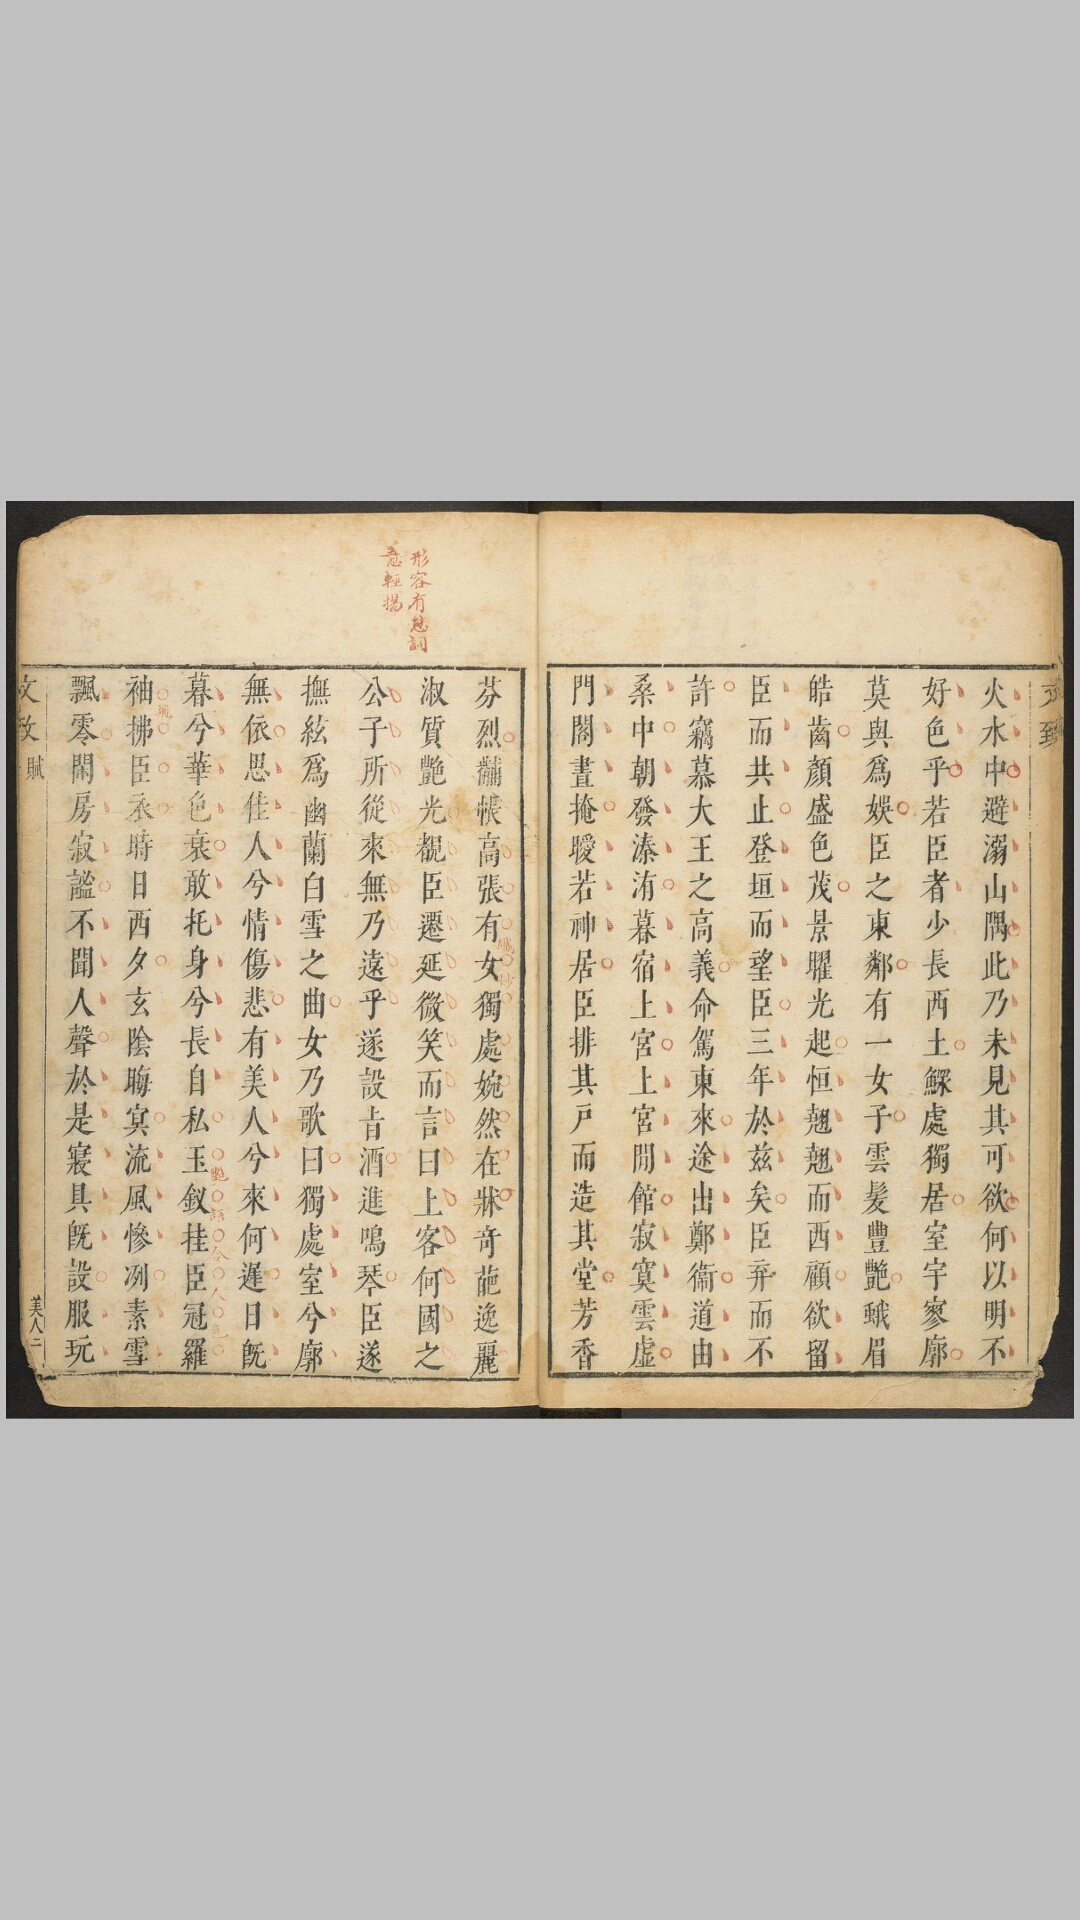 火水中避溺山隅此乃未見其可欲何以明不
好色乎若臣者少長西土鰥處獨居室宇寥廓
莫與爲娱臣之東鄰有一女子雲髪豐艷蛾眉
皓齒顏盛色茂景曜光起恒翹翹而西顧欲留
臣而共止登垣而望臣三年於兹矣臣弃而不
許竊慕大王之高義命駕東來途出鄭衞道由
桑中朝發溱洧暮宿上宮上宮閒館寂寞雲虛
門閤晝掩曖若神居臣排其戸而造其堂芳香
形容有態詞
意輕揚
芬烈黼帳高張有女獨處婉然在牀奇葩逸麗
淑質艷光覩臣遷延微笑而言曰上客何國之
公子所從來無乃遠乎遂設旨酒進鳴琴臣遂
撫絃爲幽蘭白雪之曲女乃歌曰獨處室兮廓
無依思佳人兮情傷悲有美人兮來何遲日旣
暮兮華色衰敢托身兮長自私玉釵挂臣冠羅
袖拂臣衣時日西夕玄陰晦冥流風慘冽素雪
飄零閑房寂謐不聞人聲於是寢具旣設服玩
文致
賦
美人二